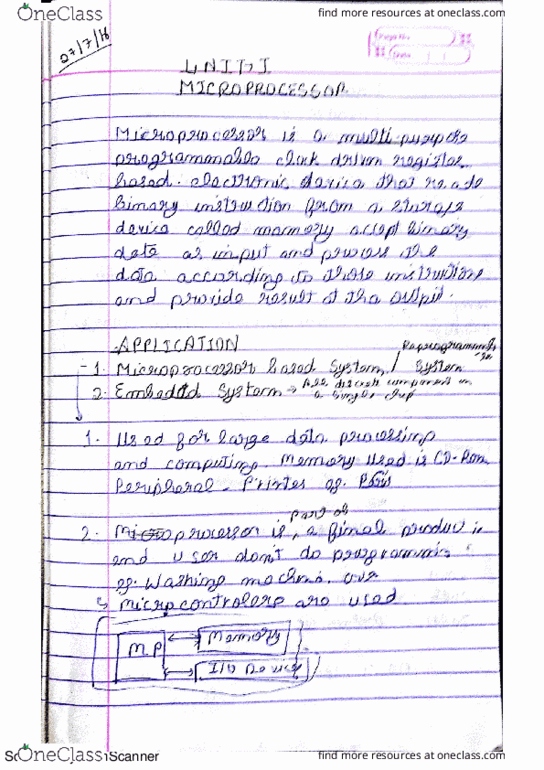 OneClass
find more resources at oneclass.com
27/7/16
Page No.
Date
UNIT-I
MICROPROCESSOR
Microprocessor is a multi purpose
programmable clock driven register
based. electronic device that reads
binary instruction from a storage
device called memory accept binary
data as input and process the
data according to those instructions
and provide result at the output.
APPLICATION
1. Microprocessor based System / Reprogrammable System
2. Embedded System → All discrete component on
a single chip
1. Used for large data processing
and computing. Memory used is CD-Rom
Peripheral - Printer eg.
part of
2. Microprocessor is, a final product
and user don't do programming
eg. Washing machine,
↳ Microcontrolers are used
MP
Memory
I/O Device
OneClass
Scanner
find more resources at oneclass.com